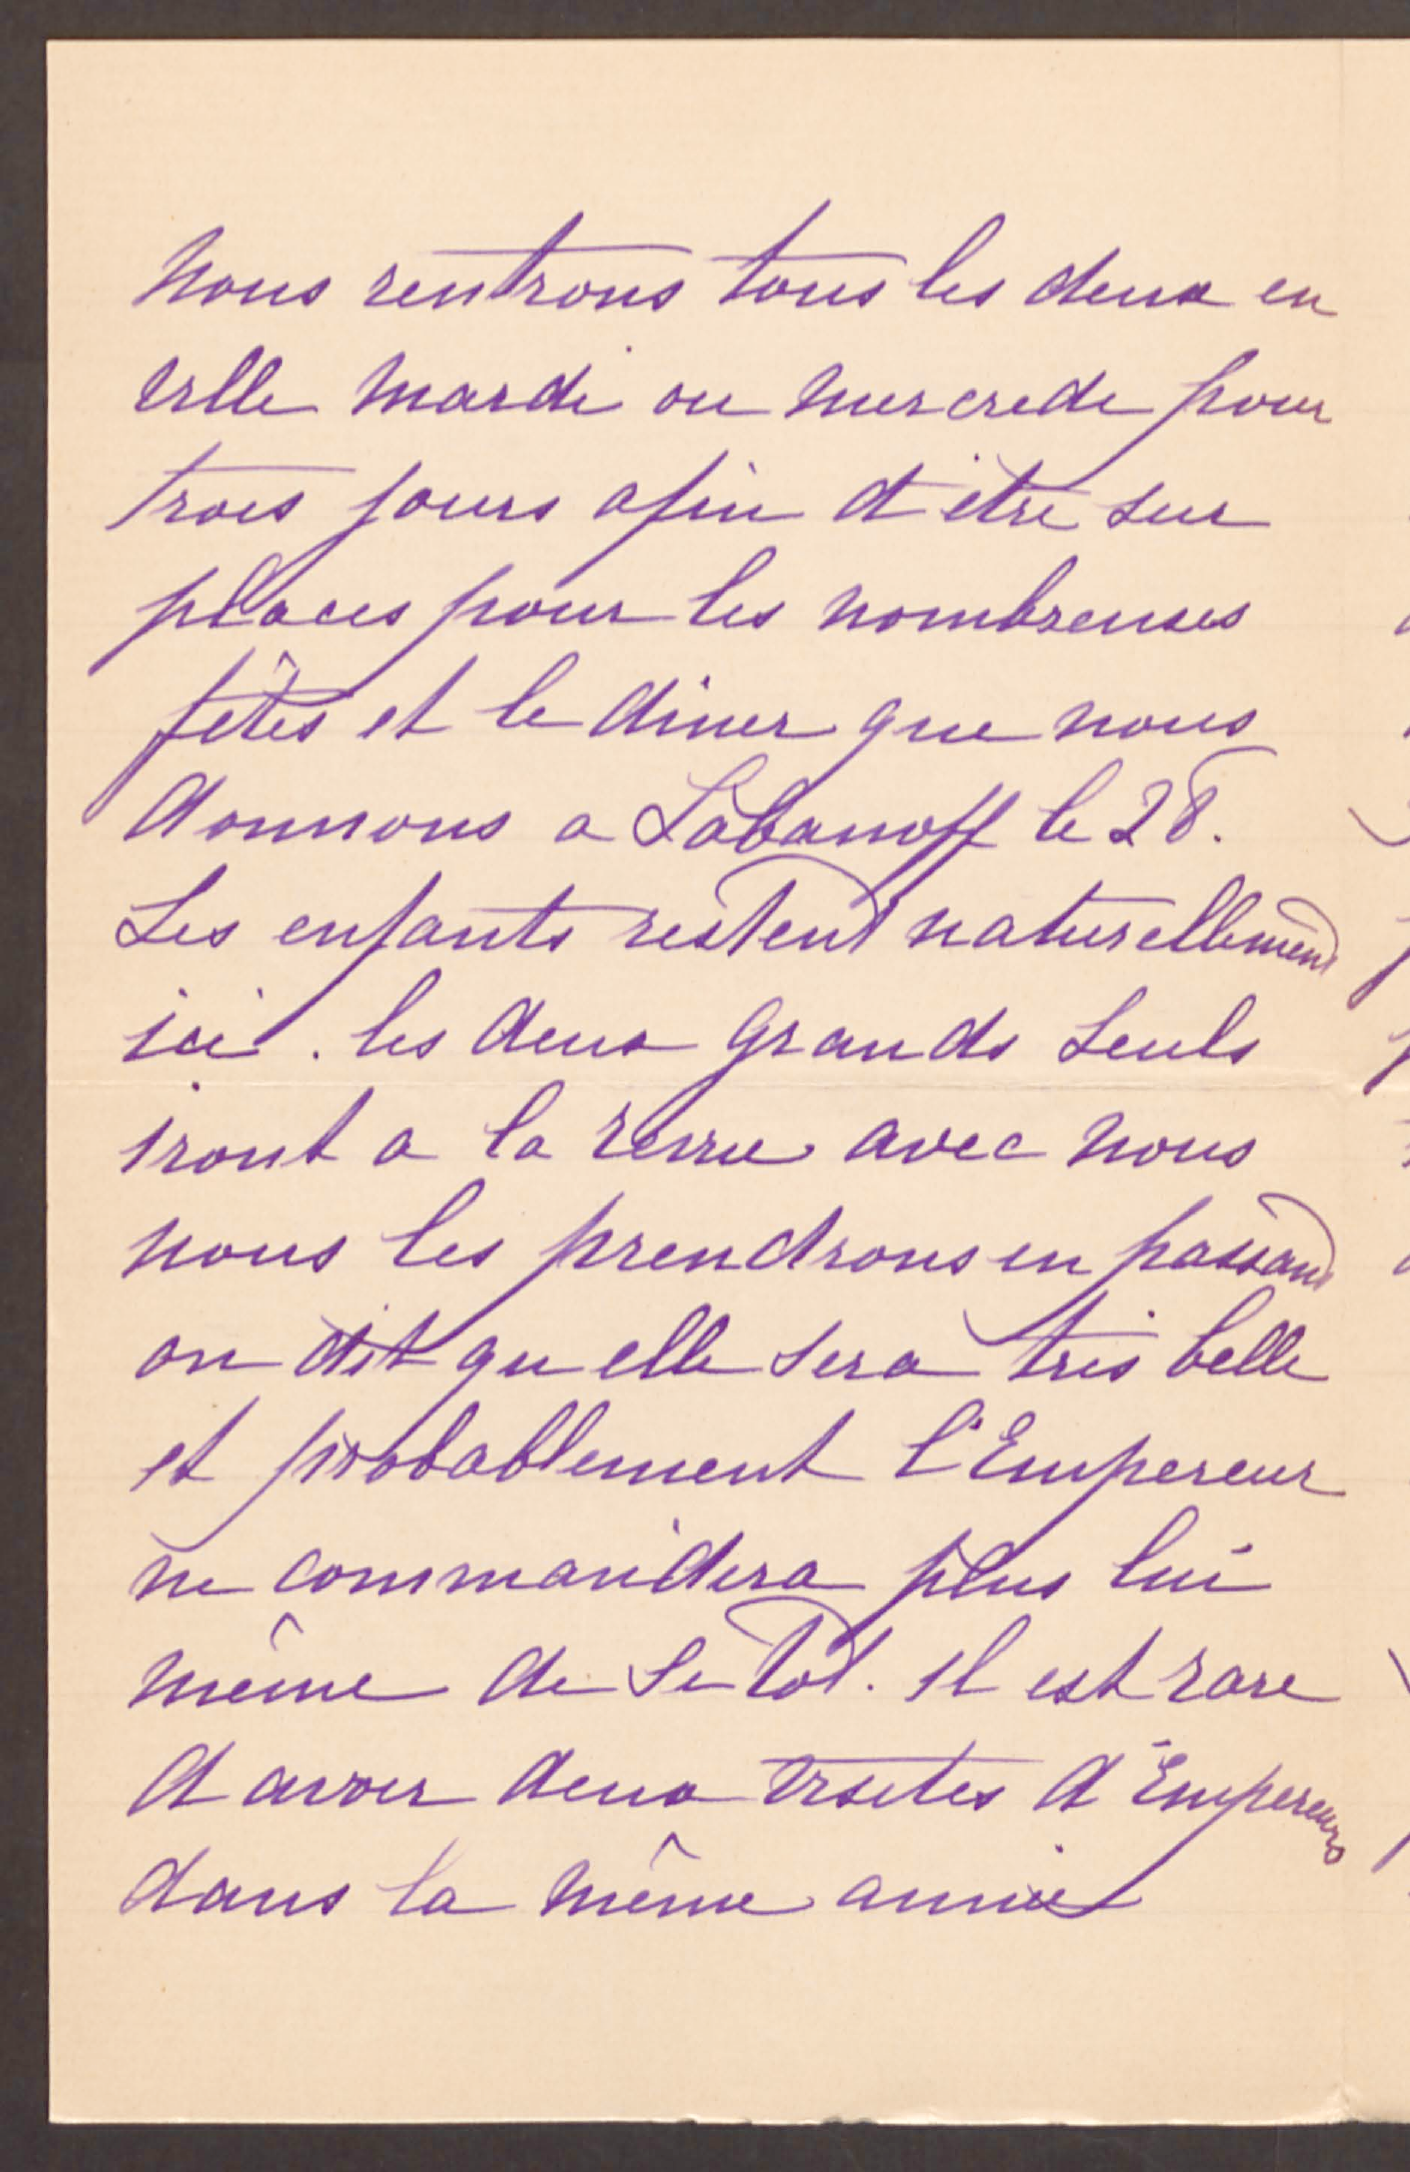 Nous rentrons tous les deux en
ville mardi ou mercredi pour
trois jours afin d'être sur
places pour les nombreuses
fêtes et le diner que nous
donnons a Labanoff le 28.
Les enfants restent naturellement
ici. les deux grands seuls
iront a la revue avec nous
nous les prendrons en passant
on dit qu elle sera très belle
et probablement l'Empereur
ne commandera plus lui
même de si tôt. il est rare
d avoir deux visites d'Empereurs
dans la même année